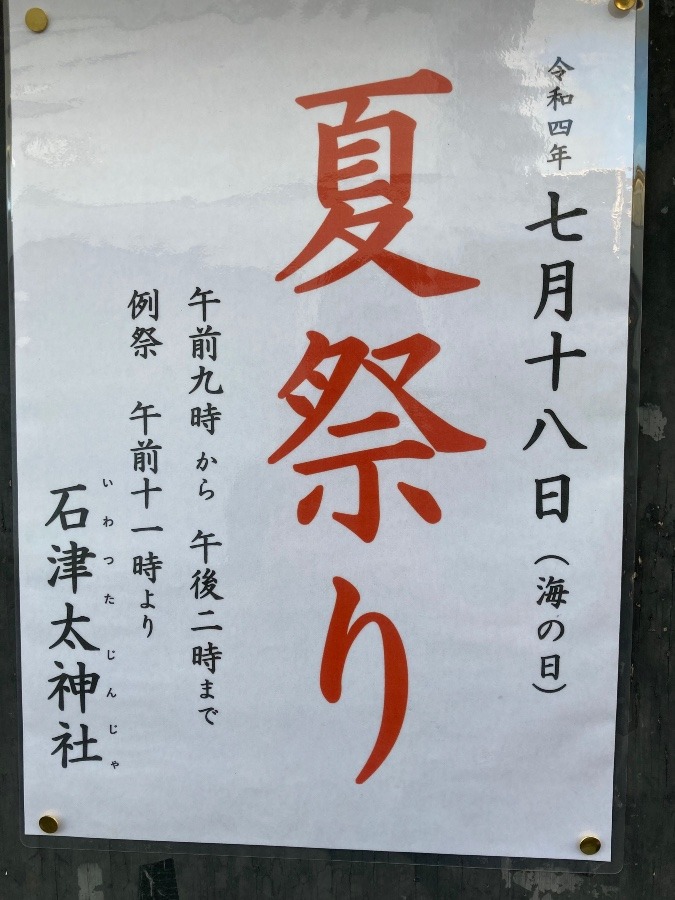 令和四年 七月十八日（海の日）
夏祭り
午前九時から 午後二時まで
例祭 午前十一時より
いわつたじんじゃ
石津太神社